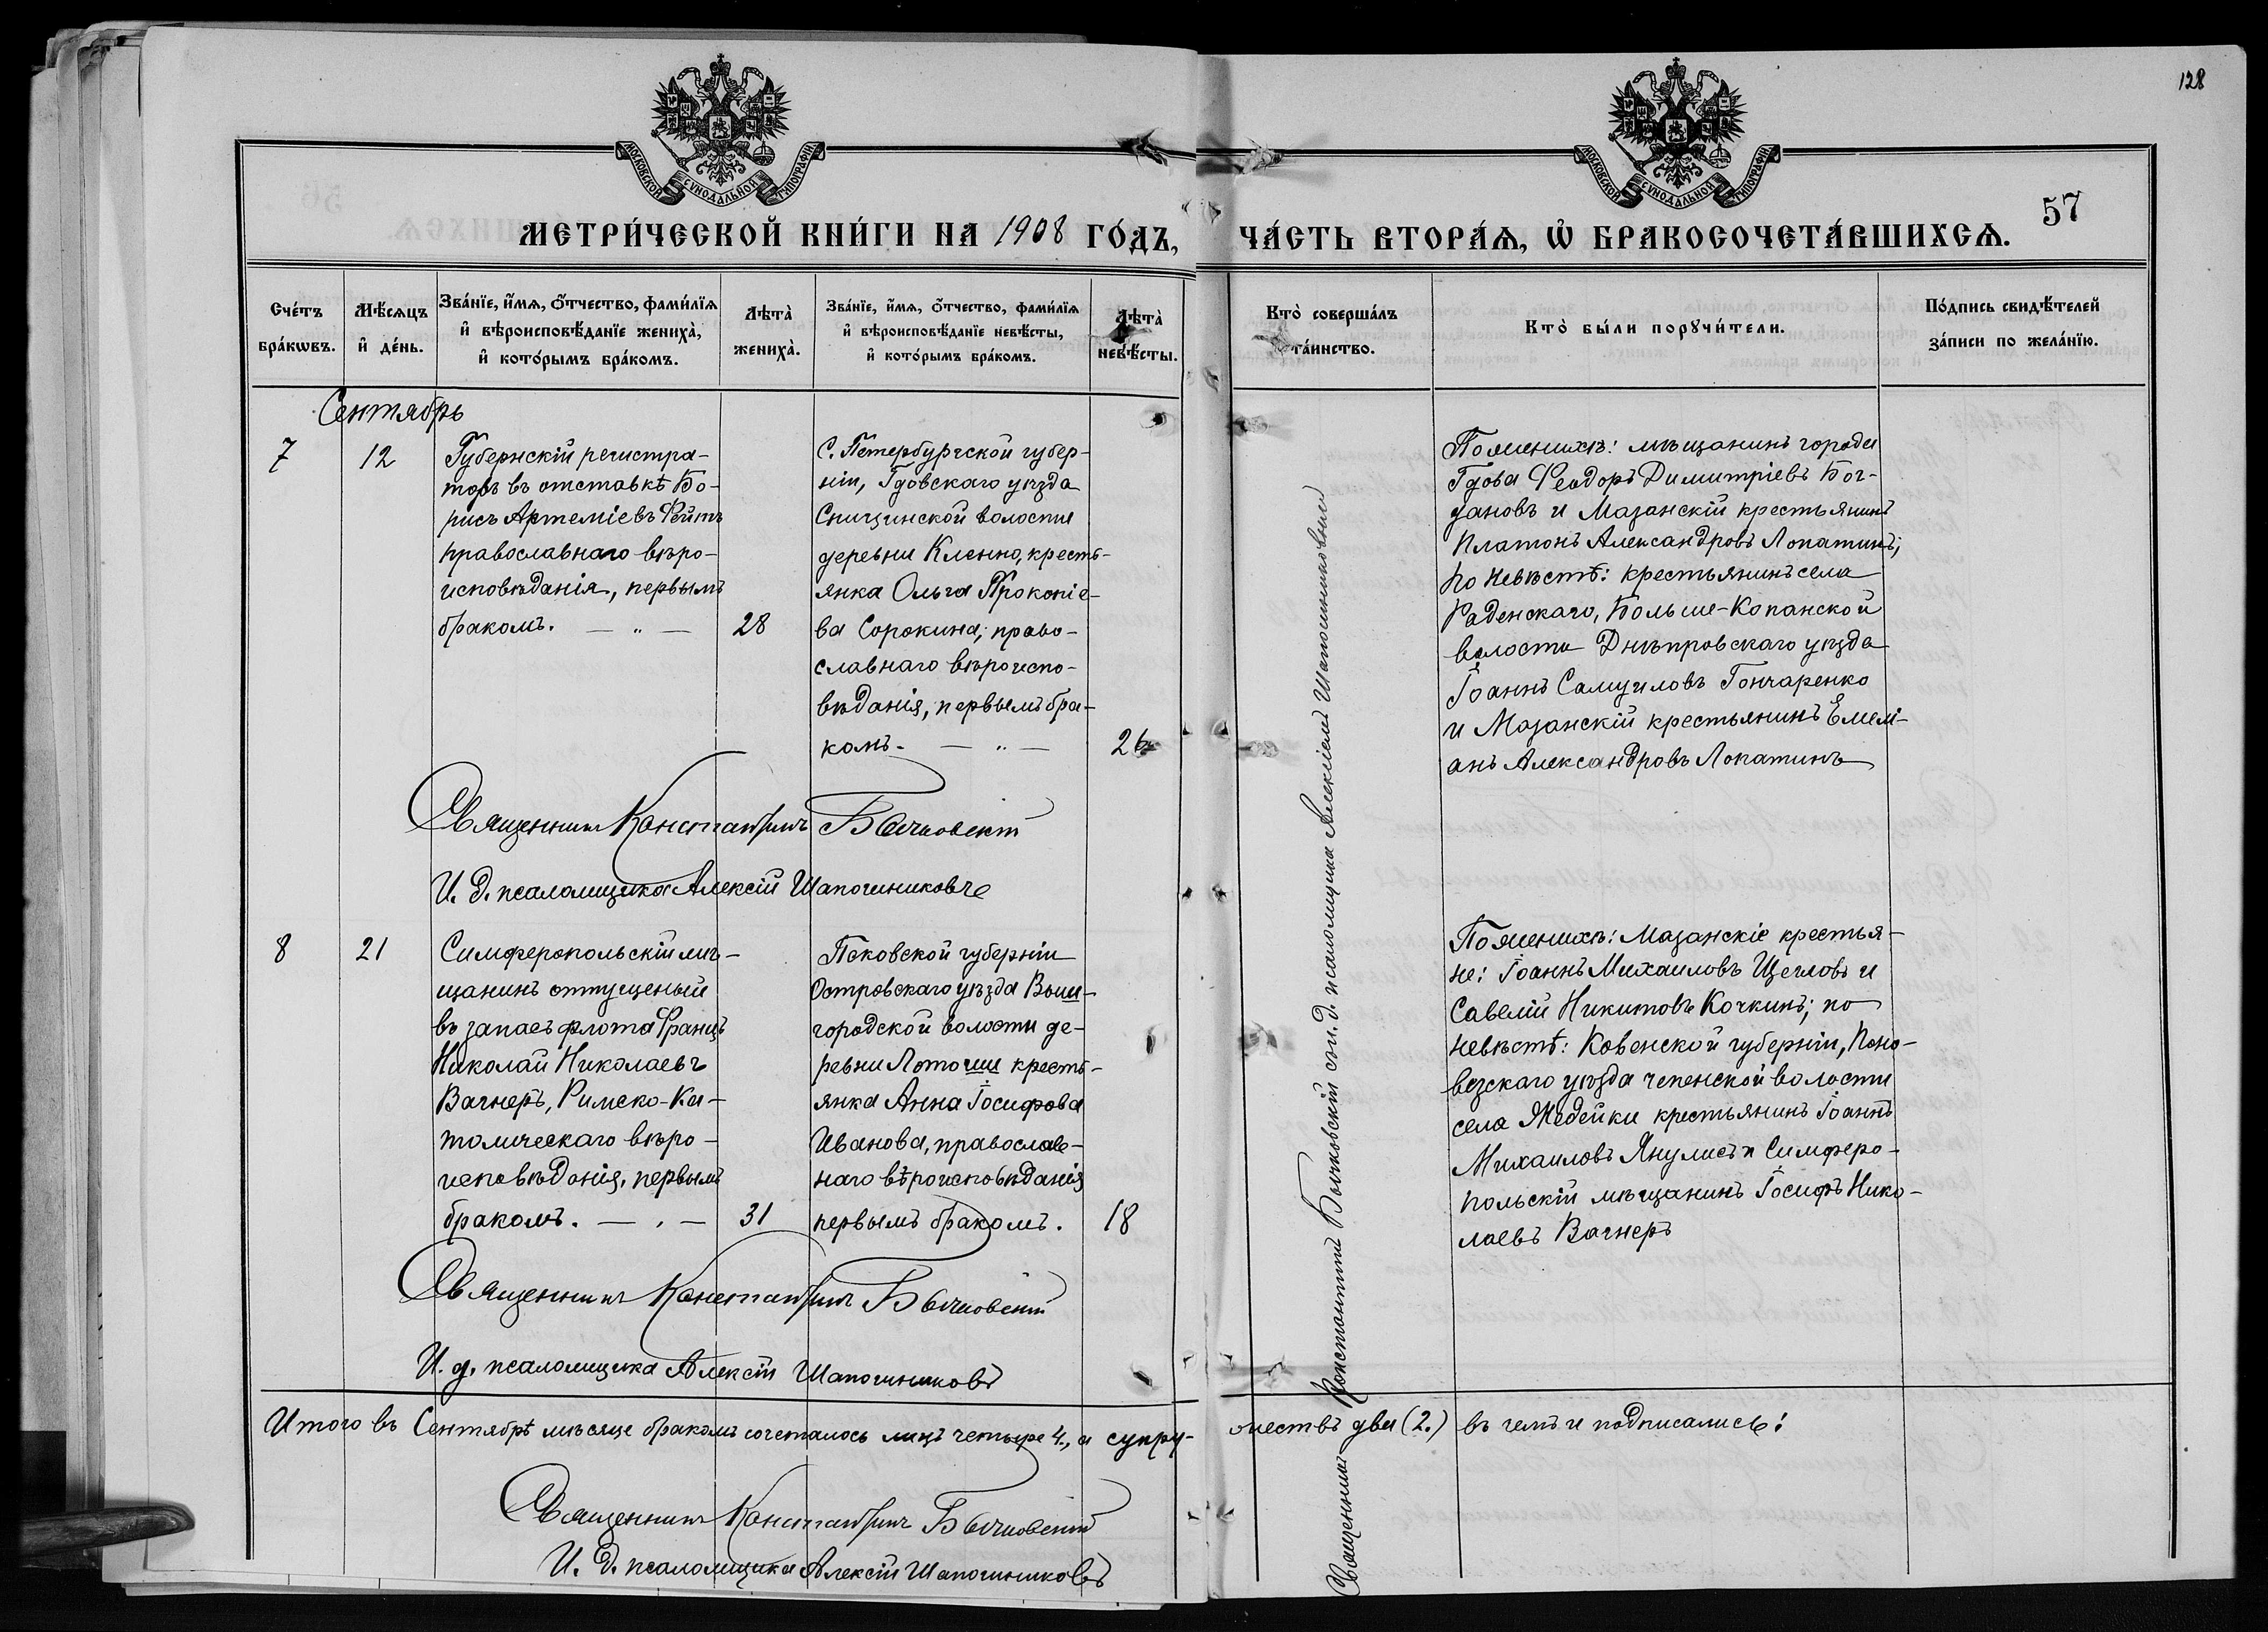 128
МОСКОВСКОЙ СѴНОДАЛЬНОЙ ТИПОГРАФІИ
МОСКОВСКОЙ СѴНОДАЛЬНОЙ ТИПОГРАФІИ
57
МЕТРИ́ЧЕСКОЙ КНИ́ГИ НА 1908 ГО́ДЪ,
ЧА́СТЬ ВТОРА́Ѧ, Ѽ БРАКОСОЧЕТА́ВШИХСѦ.
Сче́тъ
бра́кѡвъ.
Мѣ́сѧцъ
и҆ де́нь.
Зва́нїе, и҆́мѧ, ѻ҆́тчество, фами́лїѧ
и҆ вѣроисповѣ́данїе жениха̀,
и҆ кото́рымъ бра́комъ.
Лѣта̀
жениха̀.
Зва́нїе, и҆́мѧ, ѻ҆́тчество, фами́лїѧ
и҆ вѣроисповѣ́данїе невѣ́сты,
и҆ кото́рымъ бра́комъ.
Лѣта̀
невѣ́сты.
Кто̀ соверша́лъ
та́инство.
Кто̀ бы́ли порꙋчи́тели.
По́дпись свидѣ́телей
за́писи по жела́нїю.
Сентябрь
7
12
Губернскій регистра-
торъ въ отставкѣ Бо-
рисъ Артеміевъ Фейтъ
православнаго вѣро-
исповѣданія, первымъ
бракомъ. — „ —
28
С. Петербургской губер-
ніи, Гдовскаго уѣзда
Спицинской волости
деревни Кленно, кресть-
янка Ольга Прокопіе-
ва Сорокина, право-
славнаго вѣроиспо-
вѣданія, первымъ бра-
комъ. — „ —
26
По женихѣ: мѣщанинъ города
Гдова Феодоръ Димитріевъ Бог-
дановъ и Мазанскій крестьянинъ
Платонъ Александровъ Лопатинъ;
по невѣстѣ: крестьянинъ села
Раденскаго, Больше-Копанской
волости Днѣпровскаго уѣзда
Іоаннъ Самуиловъ Гончаренко
и Мазанскій крестьянинъ Емелі-
анъ Александровъ Лопатинъ
Священникъ Константинъ Бычковскій
И. д. псаломщика Алексій Шапошниковъ
8
21
Симферопольскій мѣ-
щанинъ отпущеный
въ запасъ флота Францъ
Николай Николаевъ
Вагнеръ, Римско-Ка-
толическаго вѣро-
исповѣданія, первымъ
бракомъ. — „ —
31
Псковской губерніи
Островскаго уѣзда Выш-
городской волости де-
ревни Лотоши кресть-
янка Анна Іосифова
Иванова, православ-
наго вѣроисповѣданія
первымъ бракомъ.
18
По женихѣ: Мазанскіе крестья-
не: Іоаннъ Михаиловъ Щегловъ и
Савелій Никитовъ Кочкинъ; по
невѣстѣ: Ковенской губерніи, Поно-
вѣзскаго уѣзда чепенской волости
села Жедейки крестьянинъ Іоаннъ
Михаиловъ Янулисъ и Симферо-
польскій мѣщанинъ Іосифъ Нико-
лаевъ Вагнеръ
Священникъ Константинъ Бычковскій
И. д. псаломщика Алексій Шапошниковъ
Священникъ Константинъ Бычковскій съ и. д. псаломщика Алексіемъ Шапошниковымъ
Итого въ Сентябрѣ мѣсяце бракомъ сочеталось лицъ четыре 4., а супру-
жествъ два (2.) въ чемъ и подписались:
Священникъ Константинъ Бычковскій
И. д. псаломщика Алексій Шапошниковъ